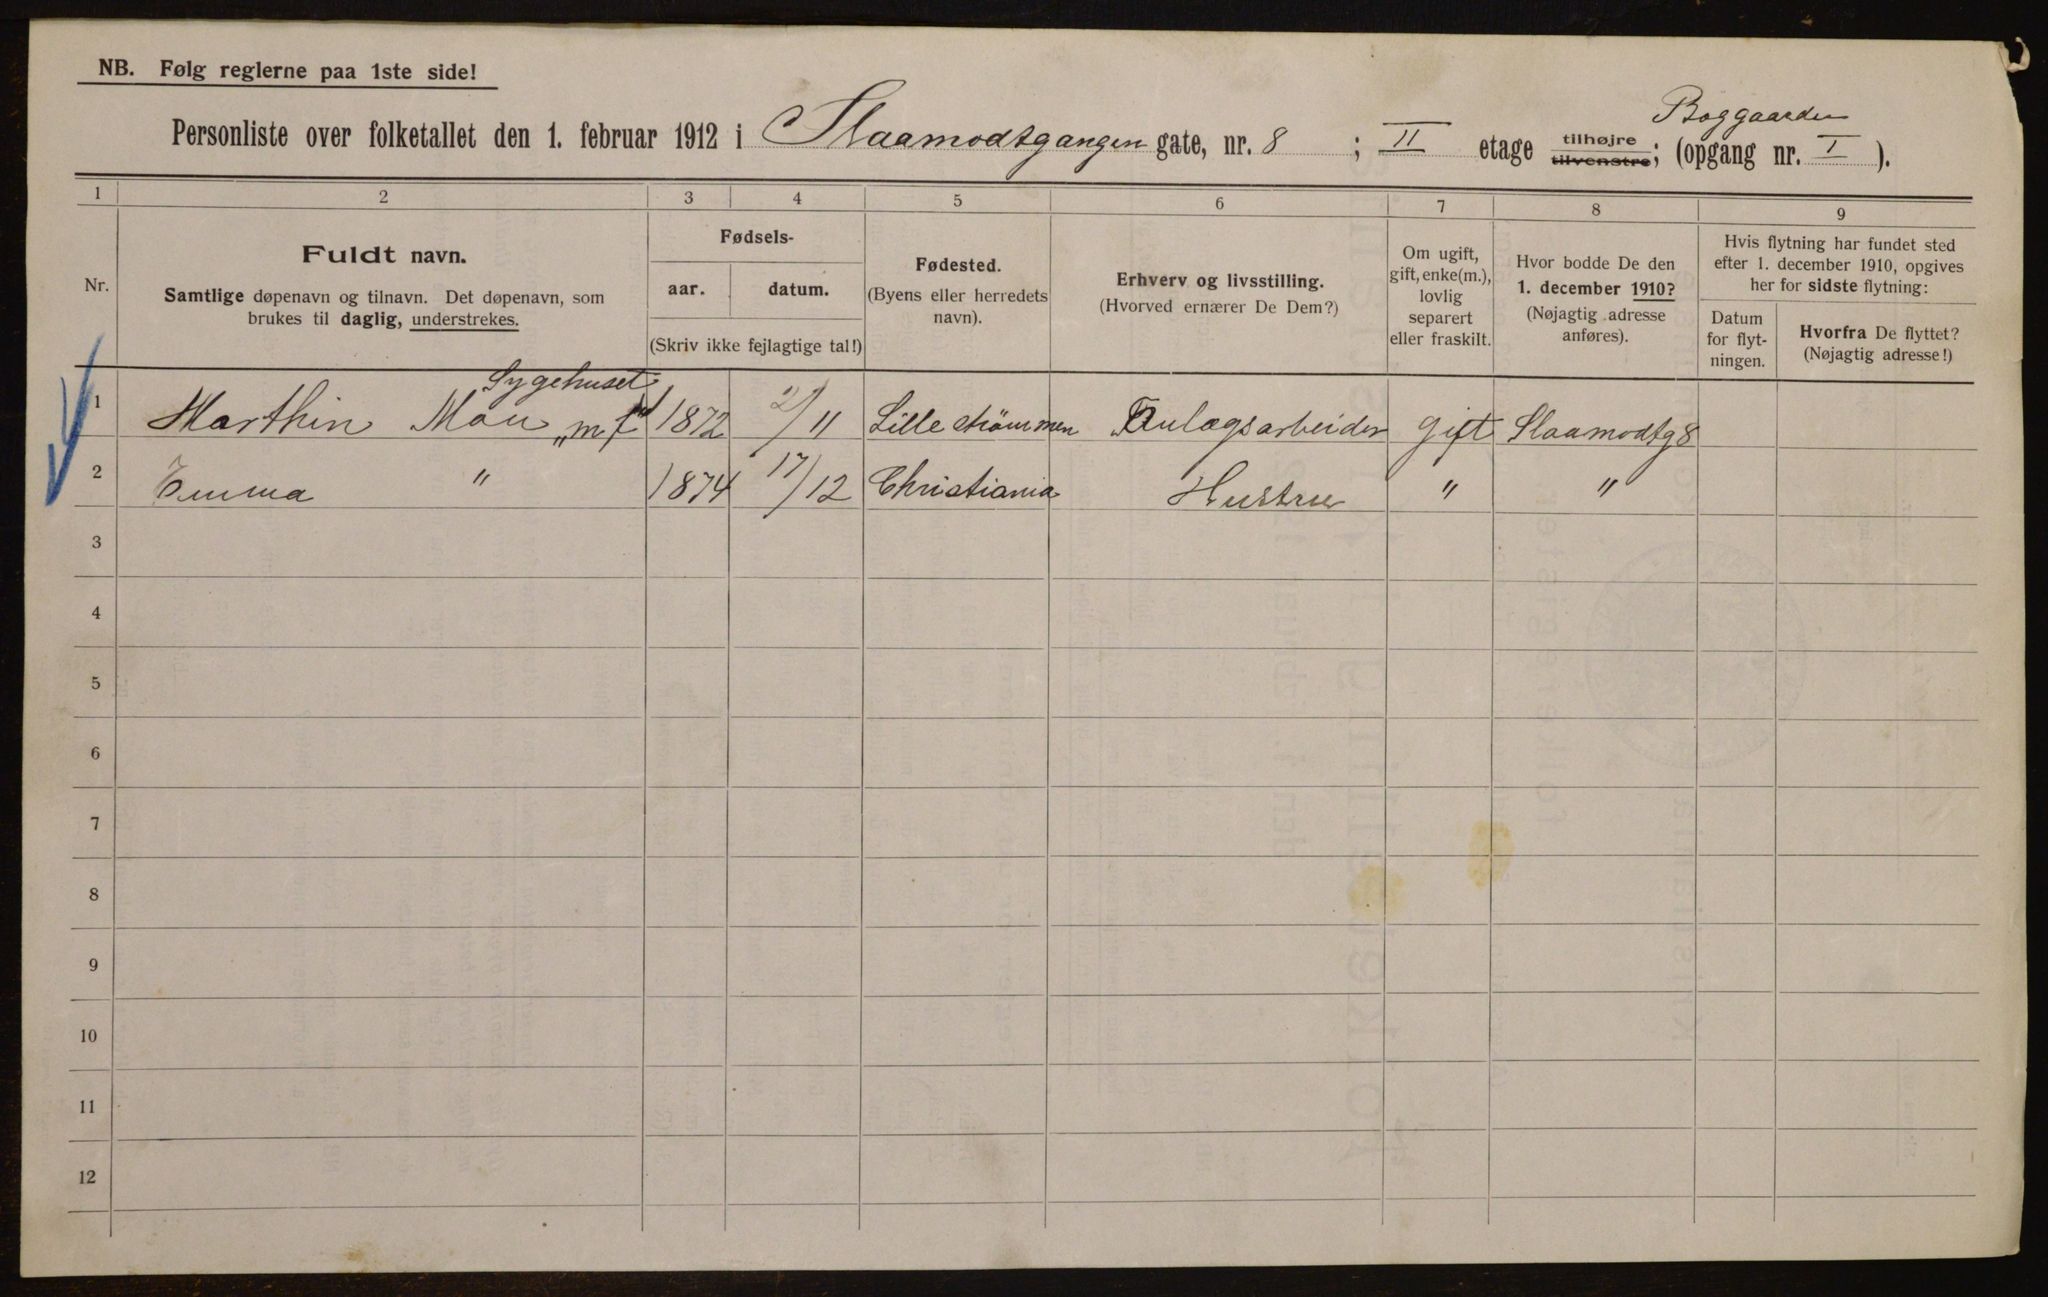 NB. Følg reglerne paa 1ste side!
Boggaarden
Personliste over folketallet den 1. februar 1912 i Slaamodtgangen gate, nr. 8 ; II etage tilhøjre tilvenstre; (opgang nr. I ).
1 2 3 4 5 6 7 8 9
Nr.
Fuldt navn.
Samtlige døpenavn og tilnavn. Det døpenavn, som
brukes til daglig, understrekes.
Fødsels-
aar. datum.
(Skriv ikke fejlagtige tal!)
Fødested.
(Byens eller herredets
navn).
Erhverv og livsstilling.
(Hvorved ernærer De Dem?)
Om ugift,
gift, enke(m.),
lovlig
separert
eller fraskilt.
Hvor bodde De den
1. december 1910?
(Nøjagtig adresse
anføres).
Hvis flytning har fundet sted
efter 1. december 1910, opgives
her for sidste flytning:
Datum
for flyt-
ningen.
Hvorfra De flyttet?
(Nøjagtig adresse!)
Sygehuset
1 Marthin Mou "mf" 1872 2/11 Lillestrømmen Anlægsarbeider gift Slaamodtg 8
2 Emma " 1874 17/12 Christiania Hustru " "
3
4
5
6
7
8
9
10
11
12